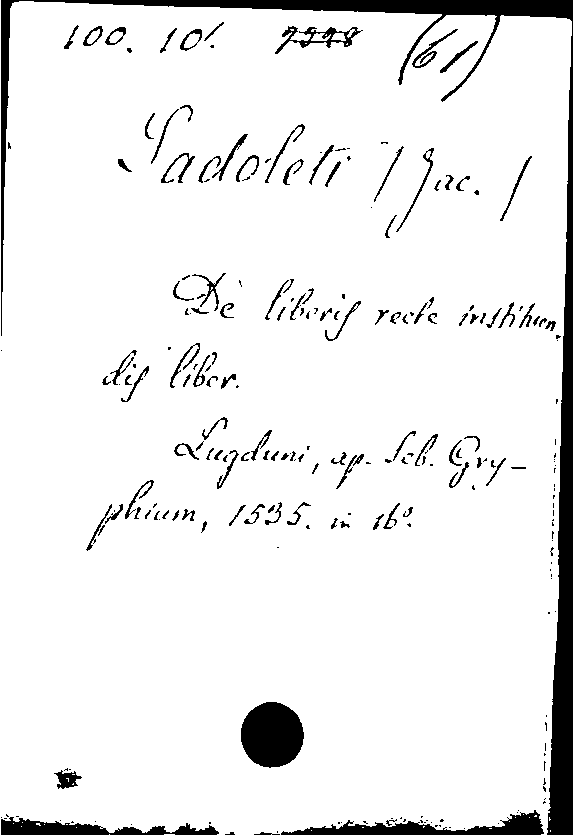 100. 10. (61)
Sadoleti / Jac. /
De liberis recte instituen
dis liber.
Lugduni, ap. Seb. Gry-
phium, 1535. in 16°.